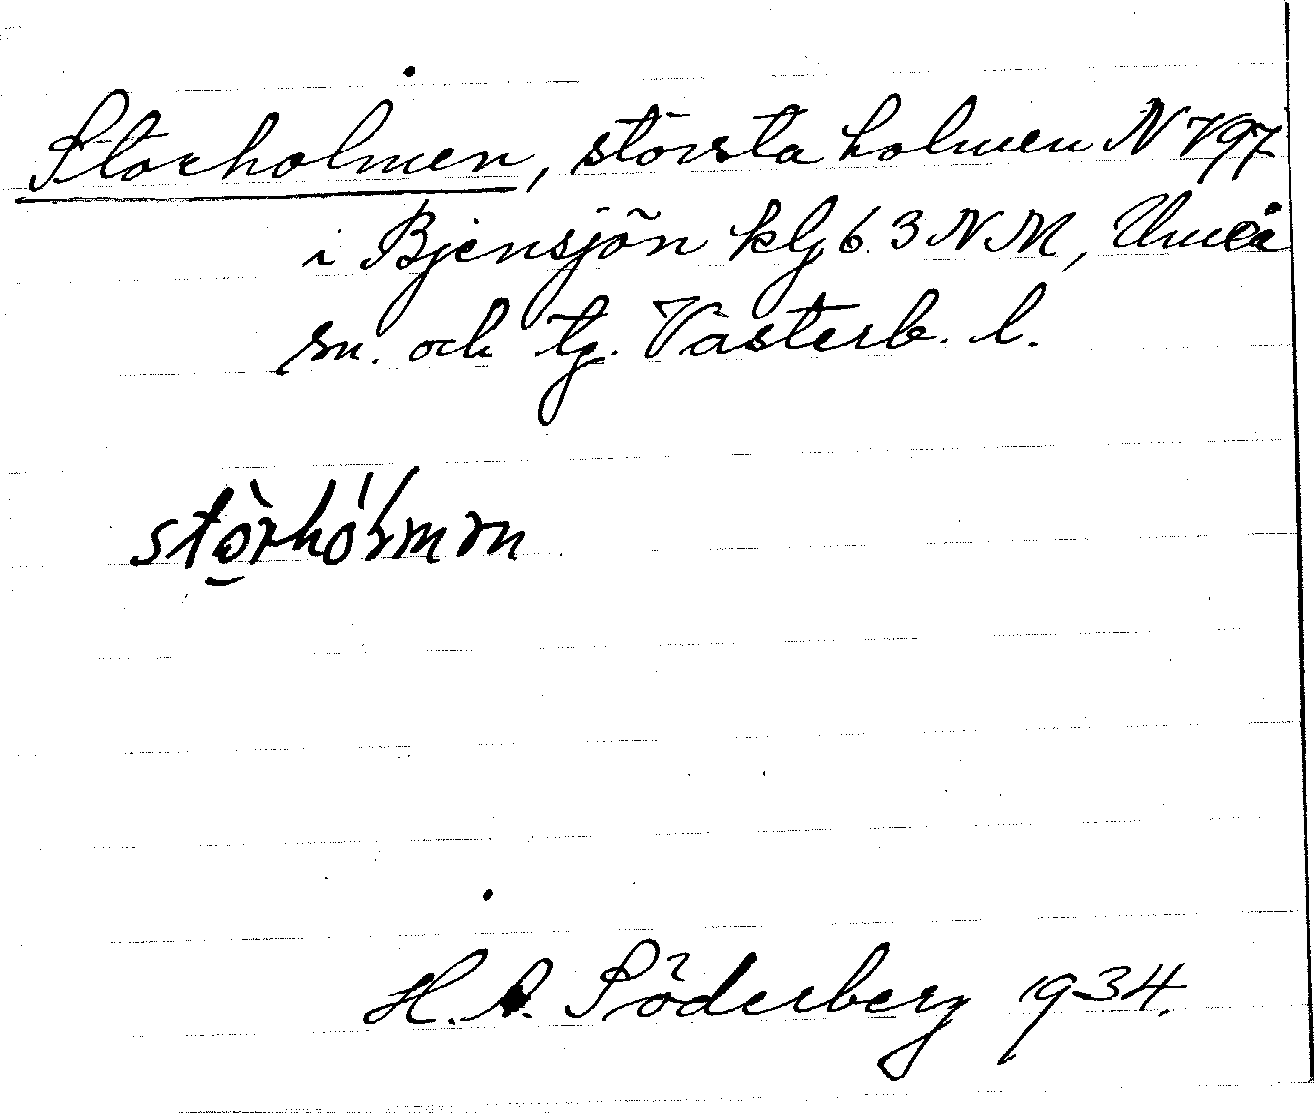 Storholmen, största holmen N 797
i Bjensjön klg 6.3 N.M, Umeå
sn. och tg. Västerb. l.
H. A. Söderberg 1934.